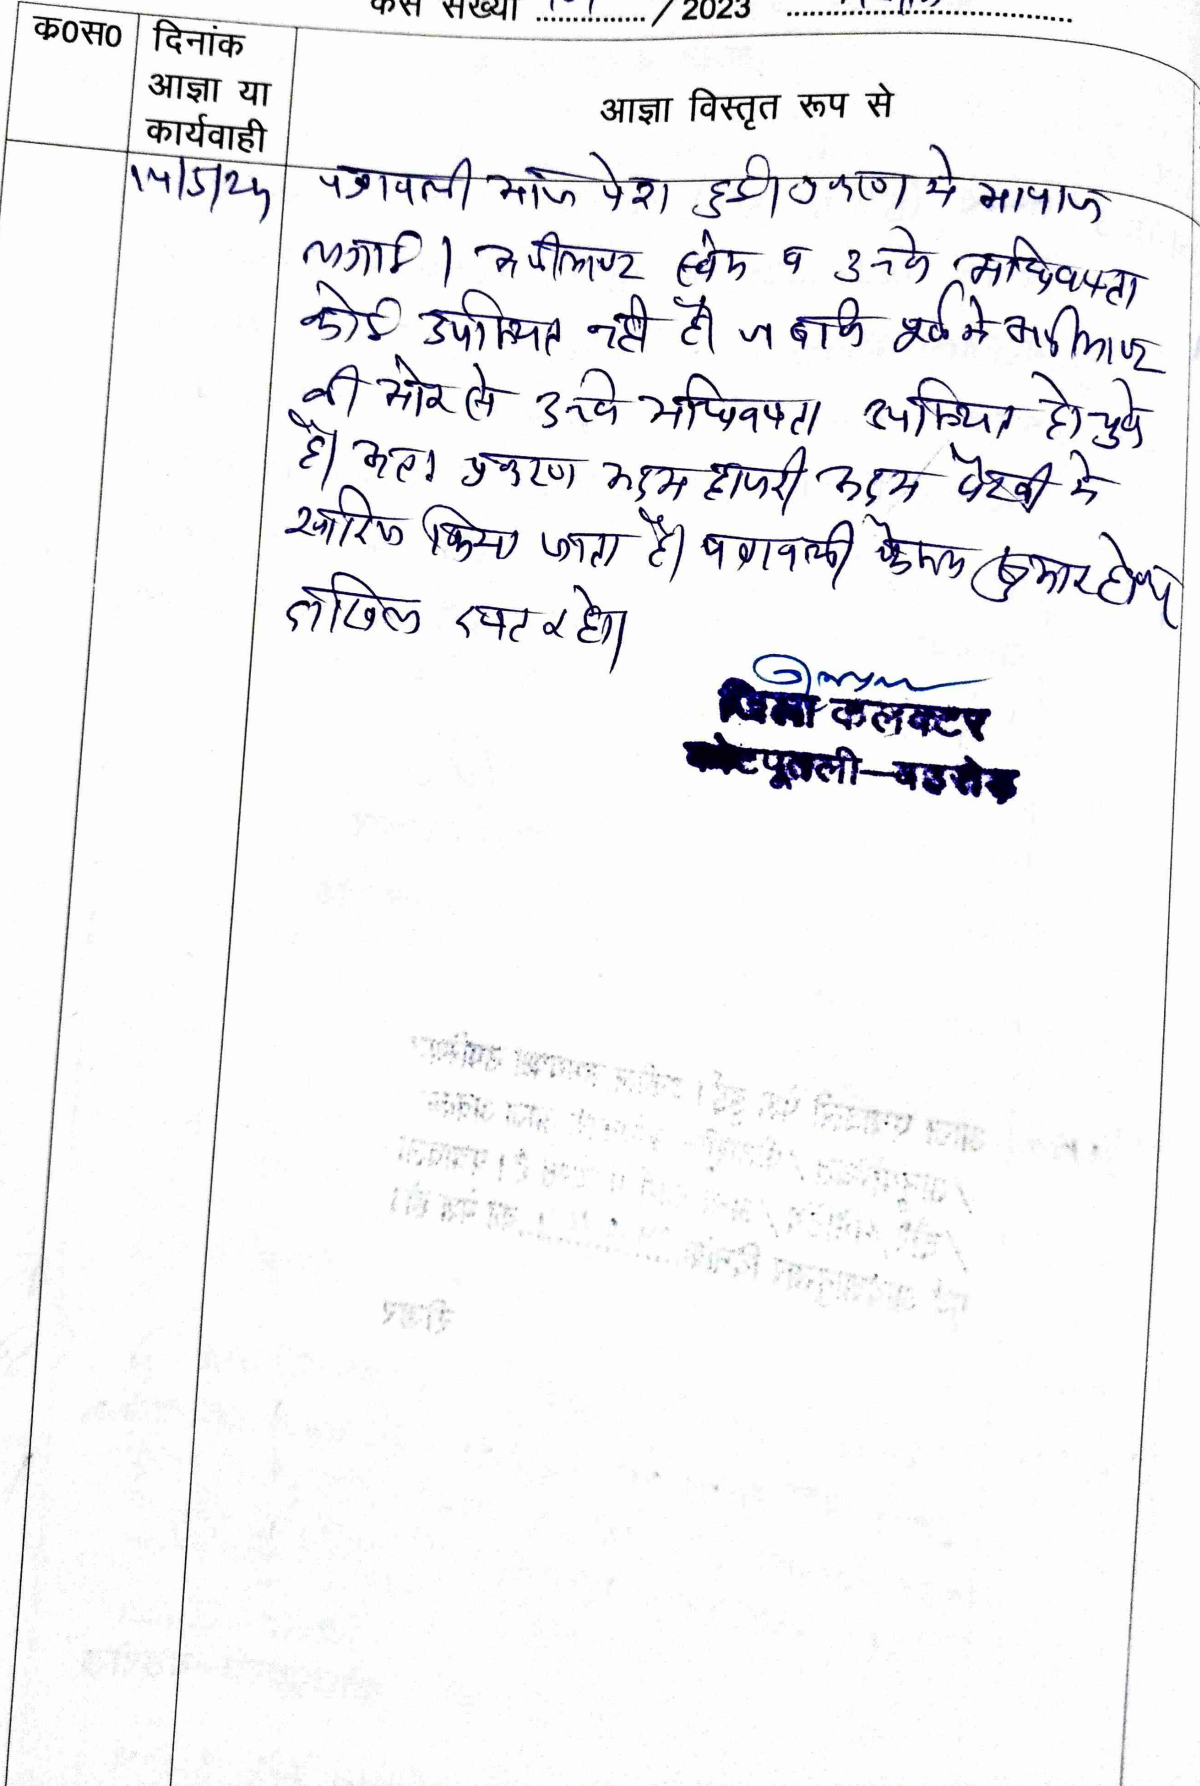 केस संख्या ............ / 2023 ............
क०स०
दिनांक
आज्ञा या
कार्यवाही
आज्ञा विस्तृत रूप से
पत्रावली आज पेश हुई। प्रकरण मे आवाज
लगाई। अपीलाण्ट स्वंय व उनके अधिवक्ता
कोई उपस्थित नही है। जबकि पूर्व मे अपीलाण्ट
की ओर से उनके अधिवक्ता उपस्थित हो चुके
है। अतः प्रकरण अदम हाजरी अदम पैरवी मे
खारिज किया जाता है। पत्रावली फैसल शुमार होकर
दाखिल दफ्तर हो।
जिला कलक्टर
कोटपूतली–बहरोड़